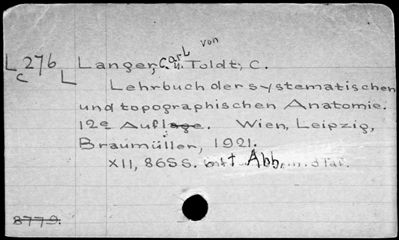 von
L 276 Langer, Carl u. Toldt, C.
c L Lehrbuch der systematischen
und topographischen Anatomie.
12e Auflage. Wien, Leipzig,
Braumüller, 1921.
XII, 86SS. Abb.
8779.